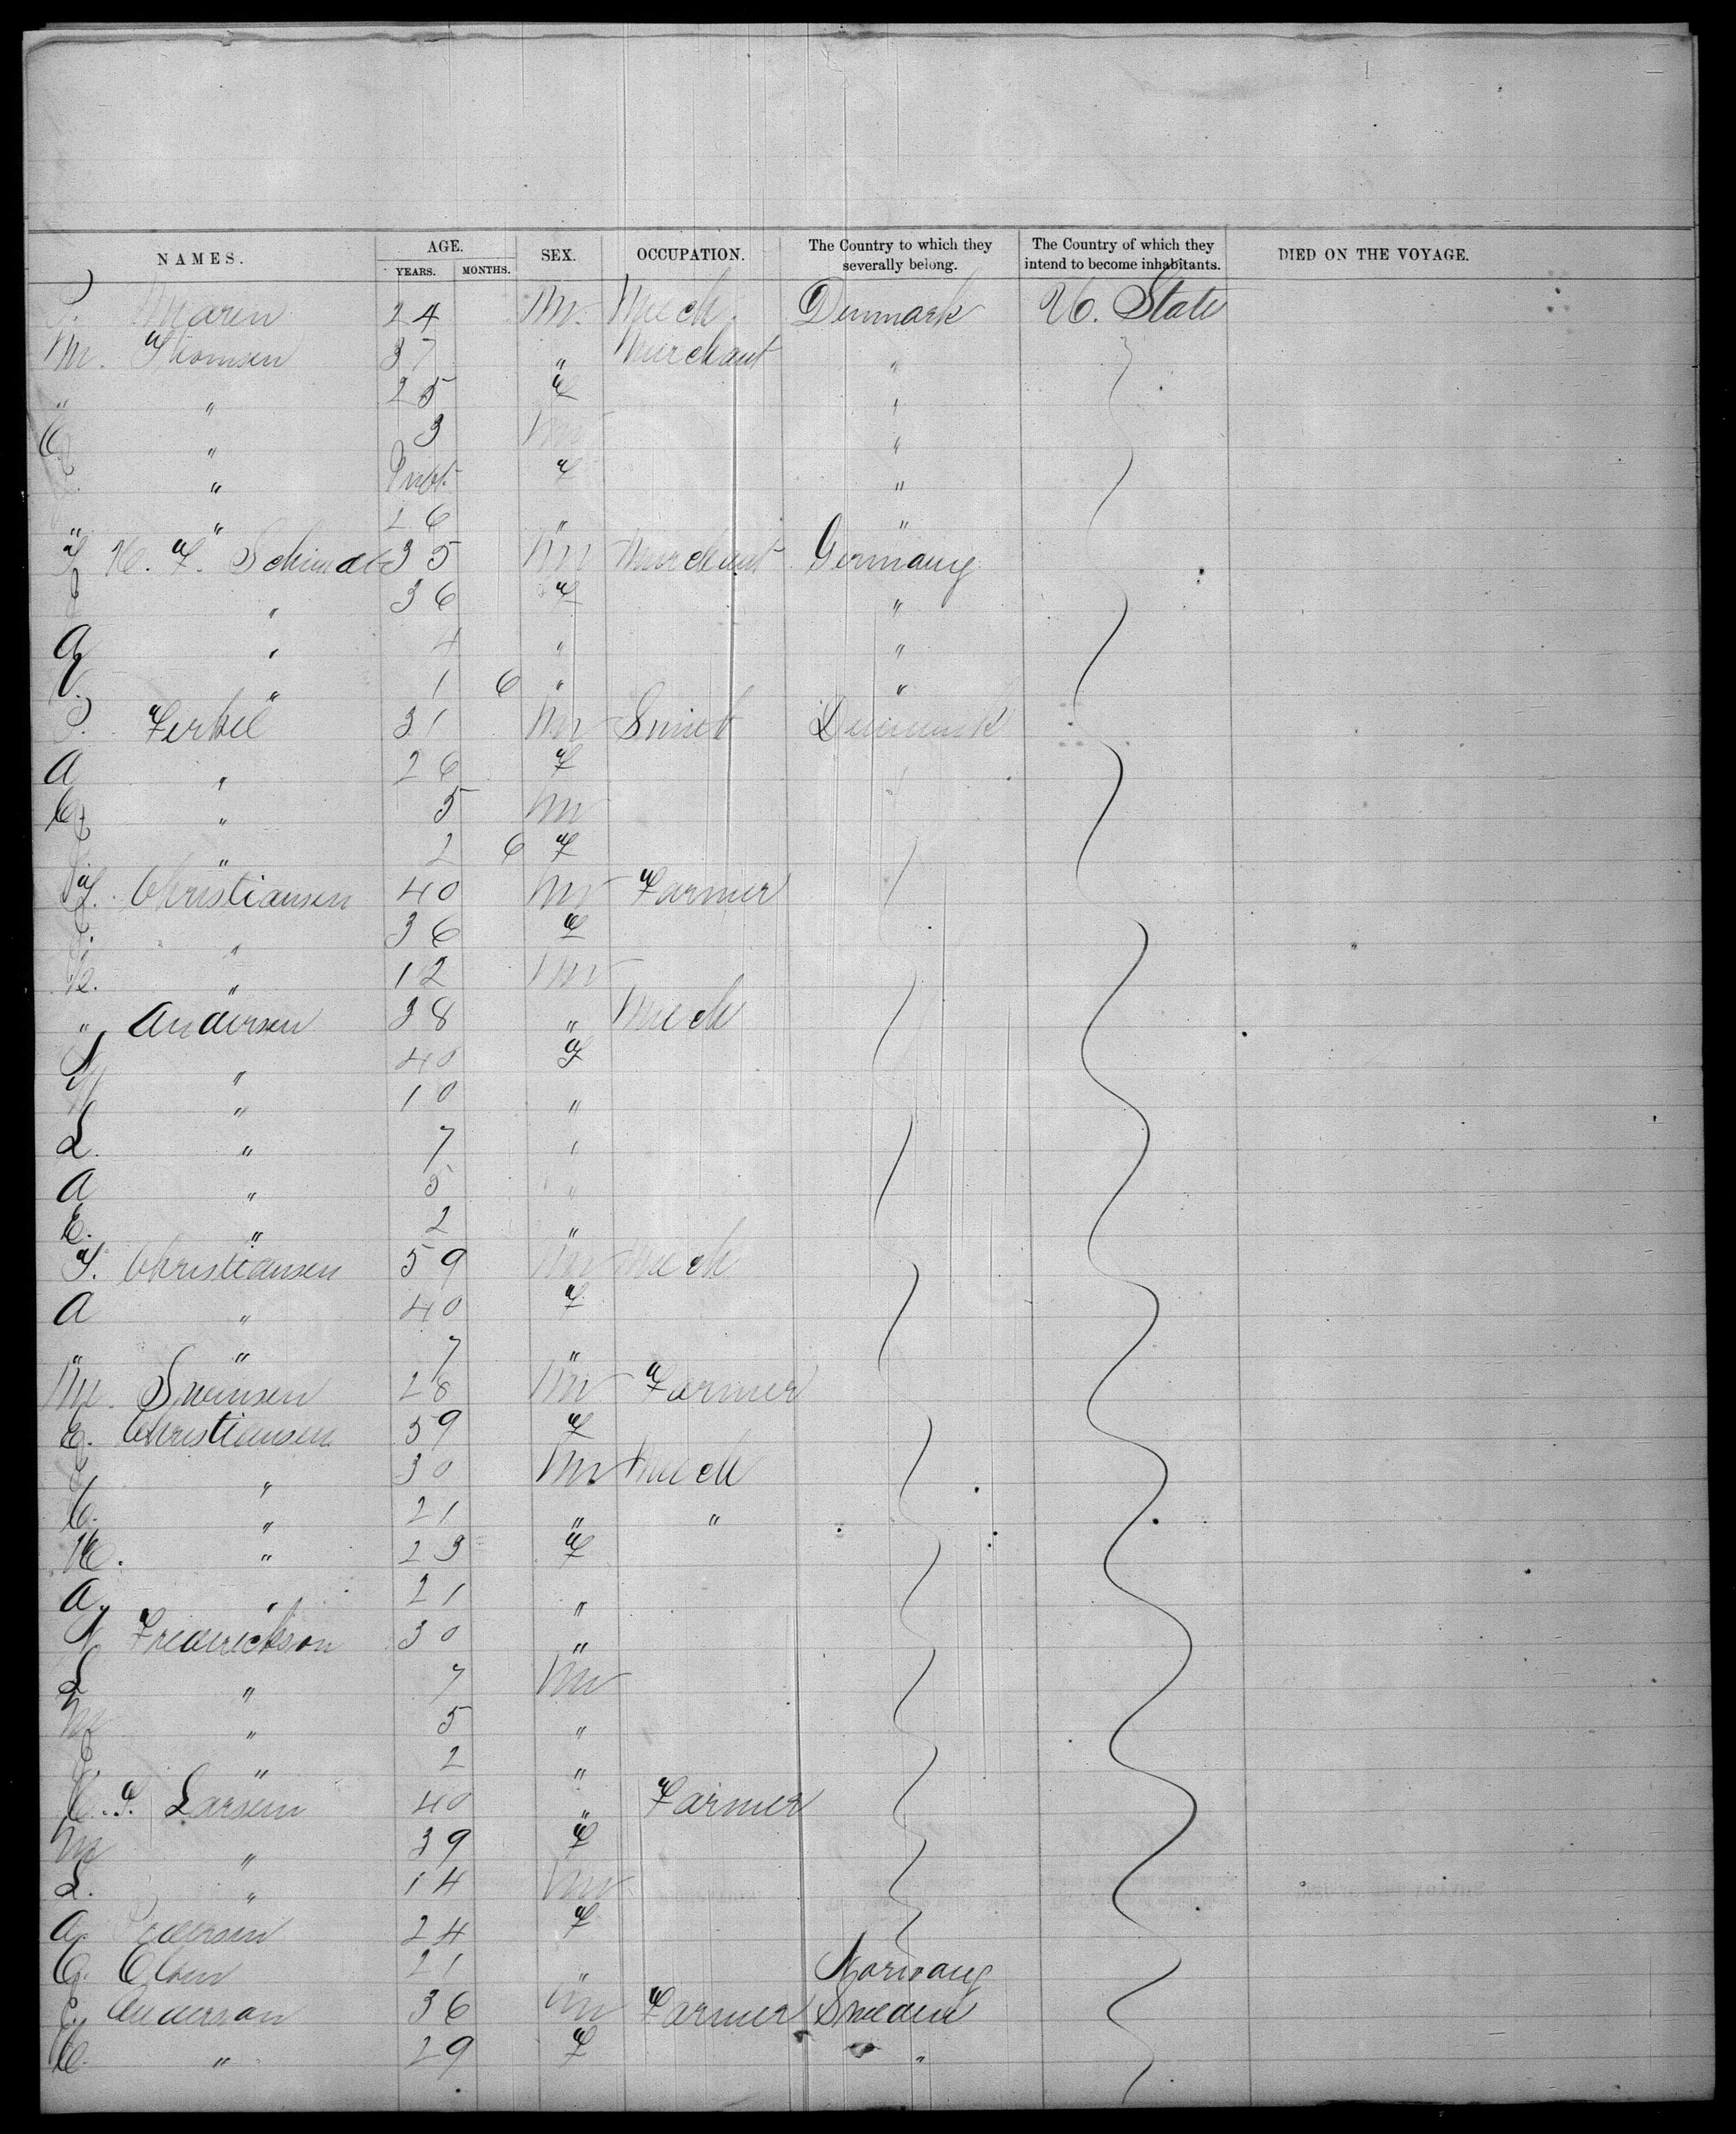 NAMES. AGE. YEARS. MONTHS. SEX. OCCUPATION. The Country to which they severally belong. The Country of which they intend to become inhabitants. DIED ON THE VOYAGE.
P. Maren 24 M. Mech. Denmark U. State
M. Thomsen 37 " Merchant "
" " 25 F "
C. " 3 M "
" F "
" " 26 " "
H. F. 35 M Merchant Germany
J " 36 F "
A " 4 " "
V. " 1 6 " "
P. 31 M Denmark
A " 26 F
C. " 5 M
" 2 6 F
Christiansen 40 M Farmer
" 36 F
" 12 M
" Andersen 38 " Mech
" 40 F
" 10 "
L. " 7 "
A " 5 "
E. " 2 "
Christiansen 59 M Mech
A " 40 F
" " 7 "
M. Swensen 28 M Farmer
E. Christiansen 59 F
" 30 M Mech
C. " 21 " "
" 23 F
A. " 21 "
Frederickson 30 "
L " 7 M
M " 5 "
" 2 "
Larsen 40 " Farmer
M " 39 F
L. " 14 M
A. Pedersen 24 F
C. Olsen 21 " Norway
Anderson 36 M Farmer Sweden
" 29 F "